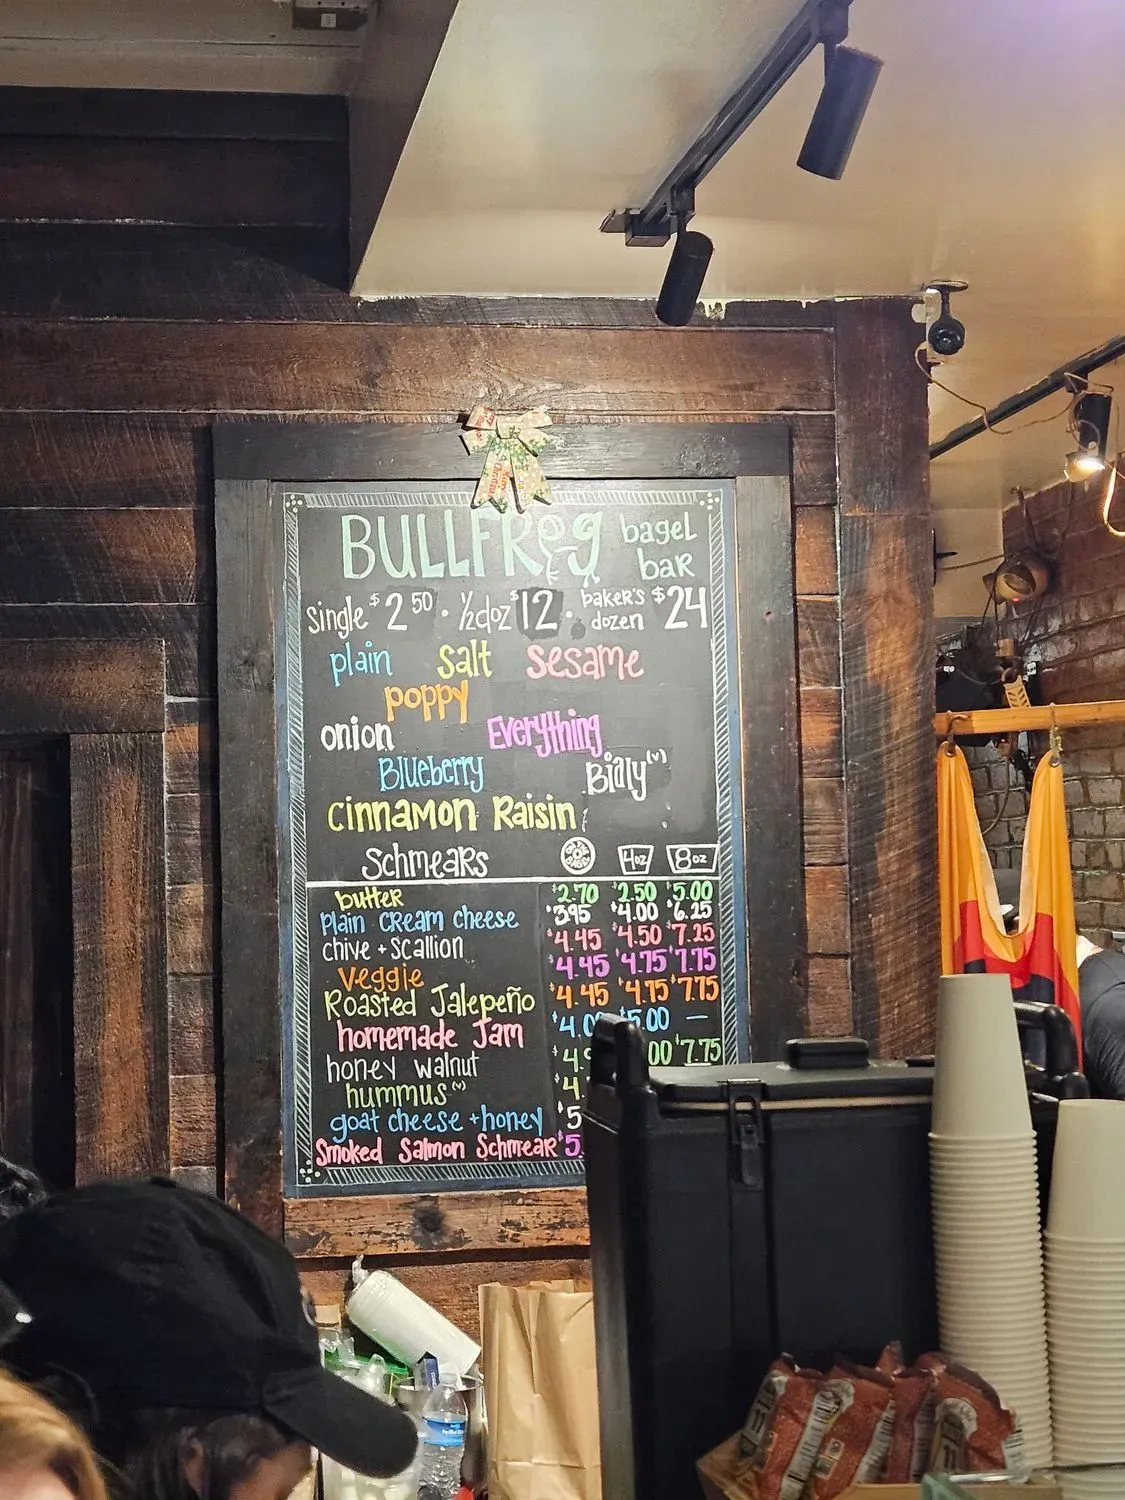 BULLFROg bagel bar
single $2.50 · ½ doz $12 · baker's dozen $24
plain salt sesame
poppy
onion Everything
Blueberry Bialy (v)
cinnamon Raisin
Schmears 4oz 8oz
butter $2.70 $2.50 $5.00
plain cream cheese $3.95 $4.00 $6.25
chive + scallion $4.45 $4.50 $7.25
Veggie $4.45 $4.75 $7.75
Roasted Jalepeño $4.45 $4.75 $7.75
homemade Jam $5.00 —
honey walnut $7.75
hummus (v)
goat cheese + honey
Smoked Salmon Schmear